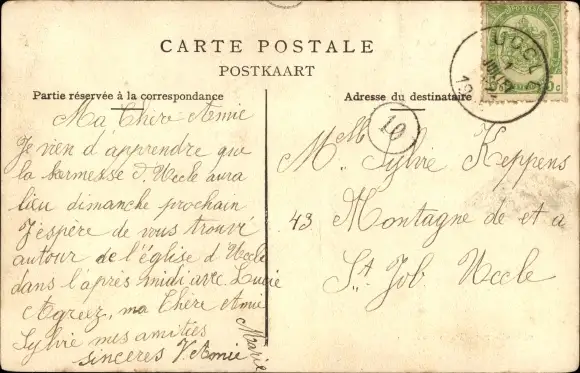 CARTE POSTALE
POSTKAART
Partie réservée à la correspondance
Adresse du destinataire
UCCLE
10
Ma Chère Amie
Je vien d'apprendre que
la kermesse d'Uccle aura
lieu dimanche prochain
J'éspère de vous trouvé
autour de l'église d'Uccle
dans l'après midi avec Lucie
Agreez, ma Chère Amie
Sylvie mes amities
sinceres V. Amie
Marie
Mlle Sylvie Keppens
43 Montagne de et a
St Job Uccle